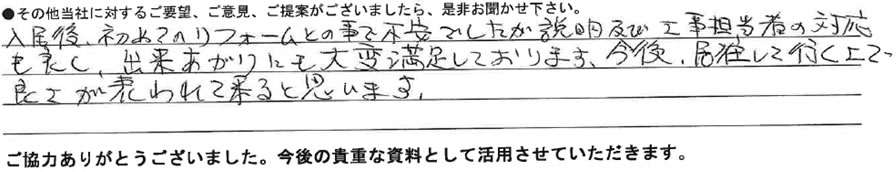 ●その他当社に対するご要望、ご意見、ご提案がございましたら、是非お聞かせ下さい。
入居後、初めてのリフォームとの事で不安でしたが説明及び工事担当者の対応
も良く、出来あがりにも大変満足しております、今後、居住して行く上で
良さが表われて来ると思います。
ご協力ありがとうございました。今後の貴重な資料として活用させていただきます。